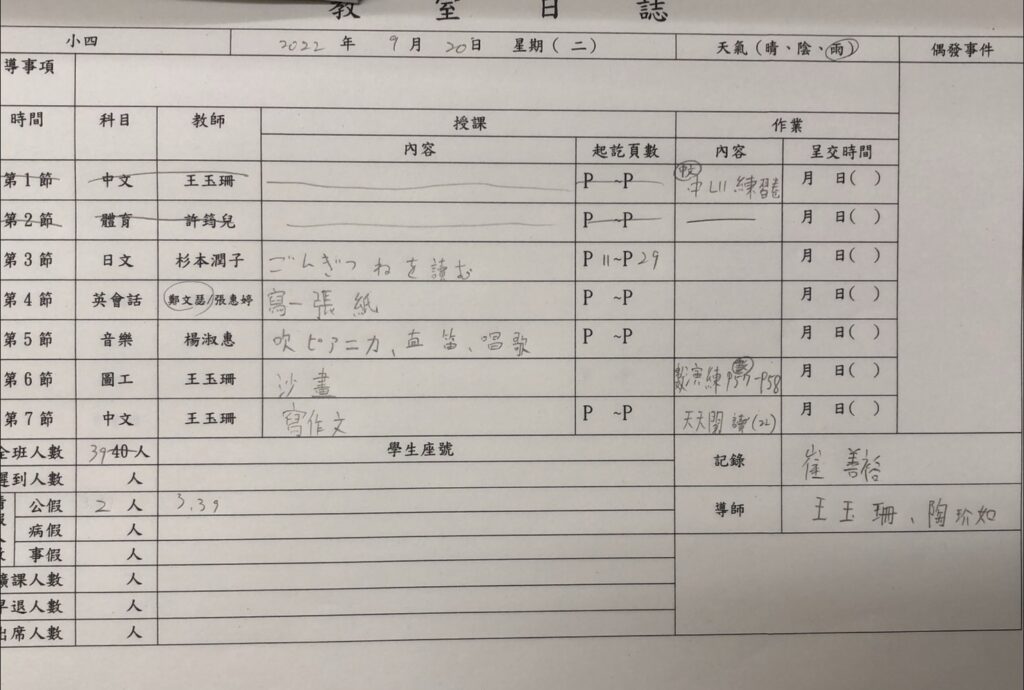 教 室 日 誌
小四 2022 年 9 月 20 日 星期 ( 二 ) 天氣 ( 晴、陰、雨 ) 偶發事件
導事項
時間 科目 教師 授課 作業
內容 起訖頁數 內容 呈交時間
第 1 節 中文 王玉珊 P ~P 中文 中 L11 練習卷 月 日 ( )
第 2 節 體育 許筠兒 P ~P 月 日 ( )
第 3 節 日文 杉本潤子 ごんぎつねを読む P 11~P 29 月 日 ( )
第 4 節 英會話 鄭文瑟/張惠婷 寫一張紙 P ~P 月 日 ( )
第 5 節 音樂 楊淑惠 吹ピアニカ、直笛、唱歌 P ~P 月 日 ( )
第 6 節 圖工 王玉珊 沙畫 數演練 P57-P58 月 日 ( )
第 7 節 中文 王玉珊 寫作文 P ~P 天天閱讀(22) 月 日 ( )
全班人數 39 40 人 學生座號 記錄 崔善裕
遲到人數 人
公假 2 人 3.39 導師 王玉珊、陶玠如
病假 人
事假 人
曠課人數 人
早退人數 人
出席人數 人